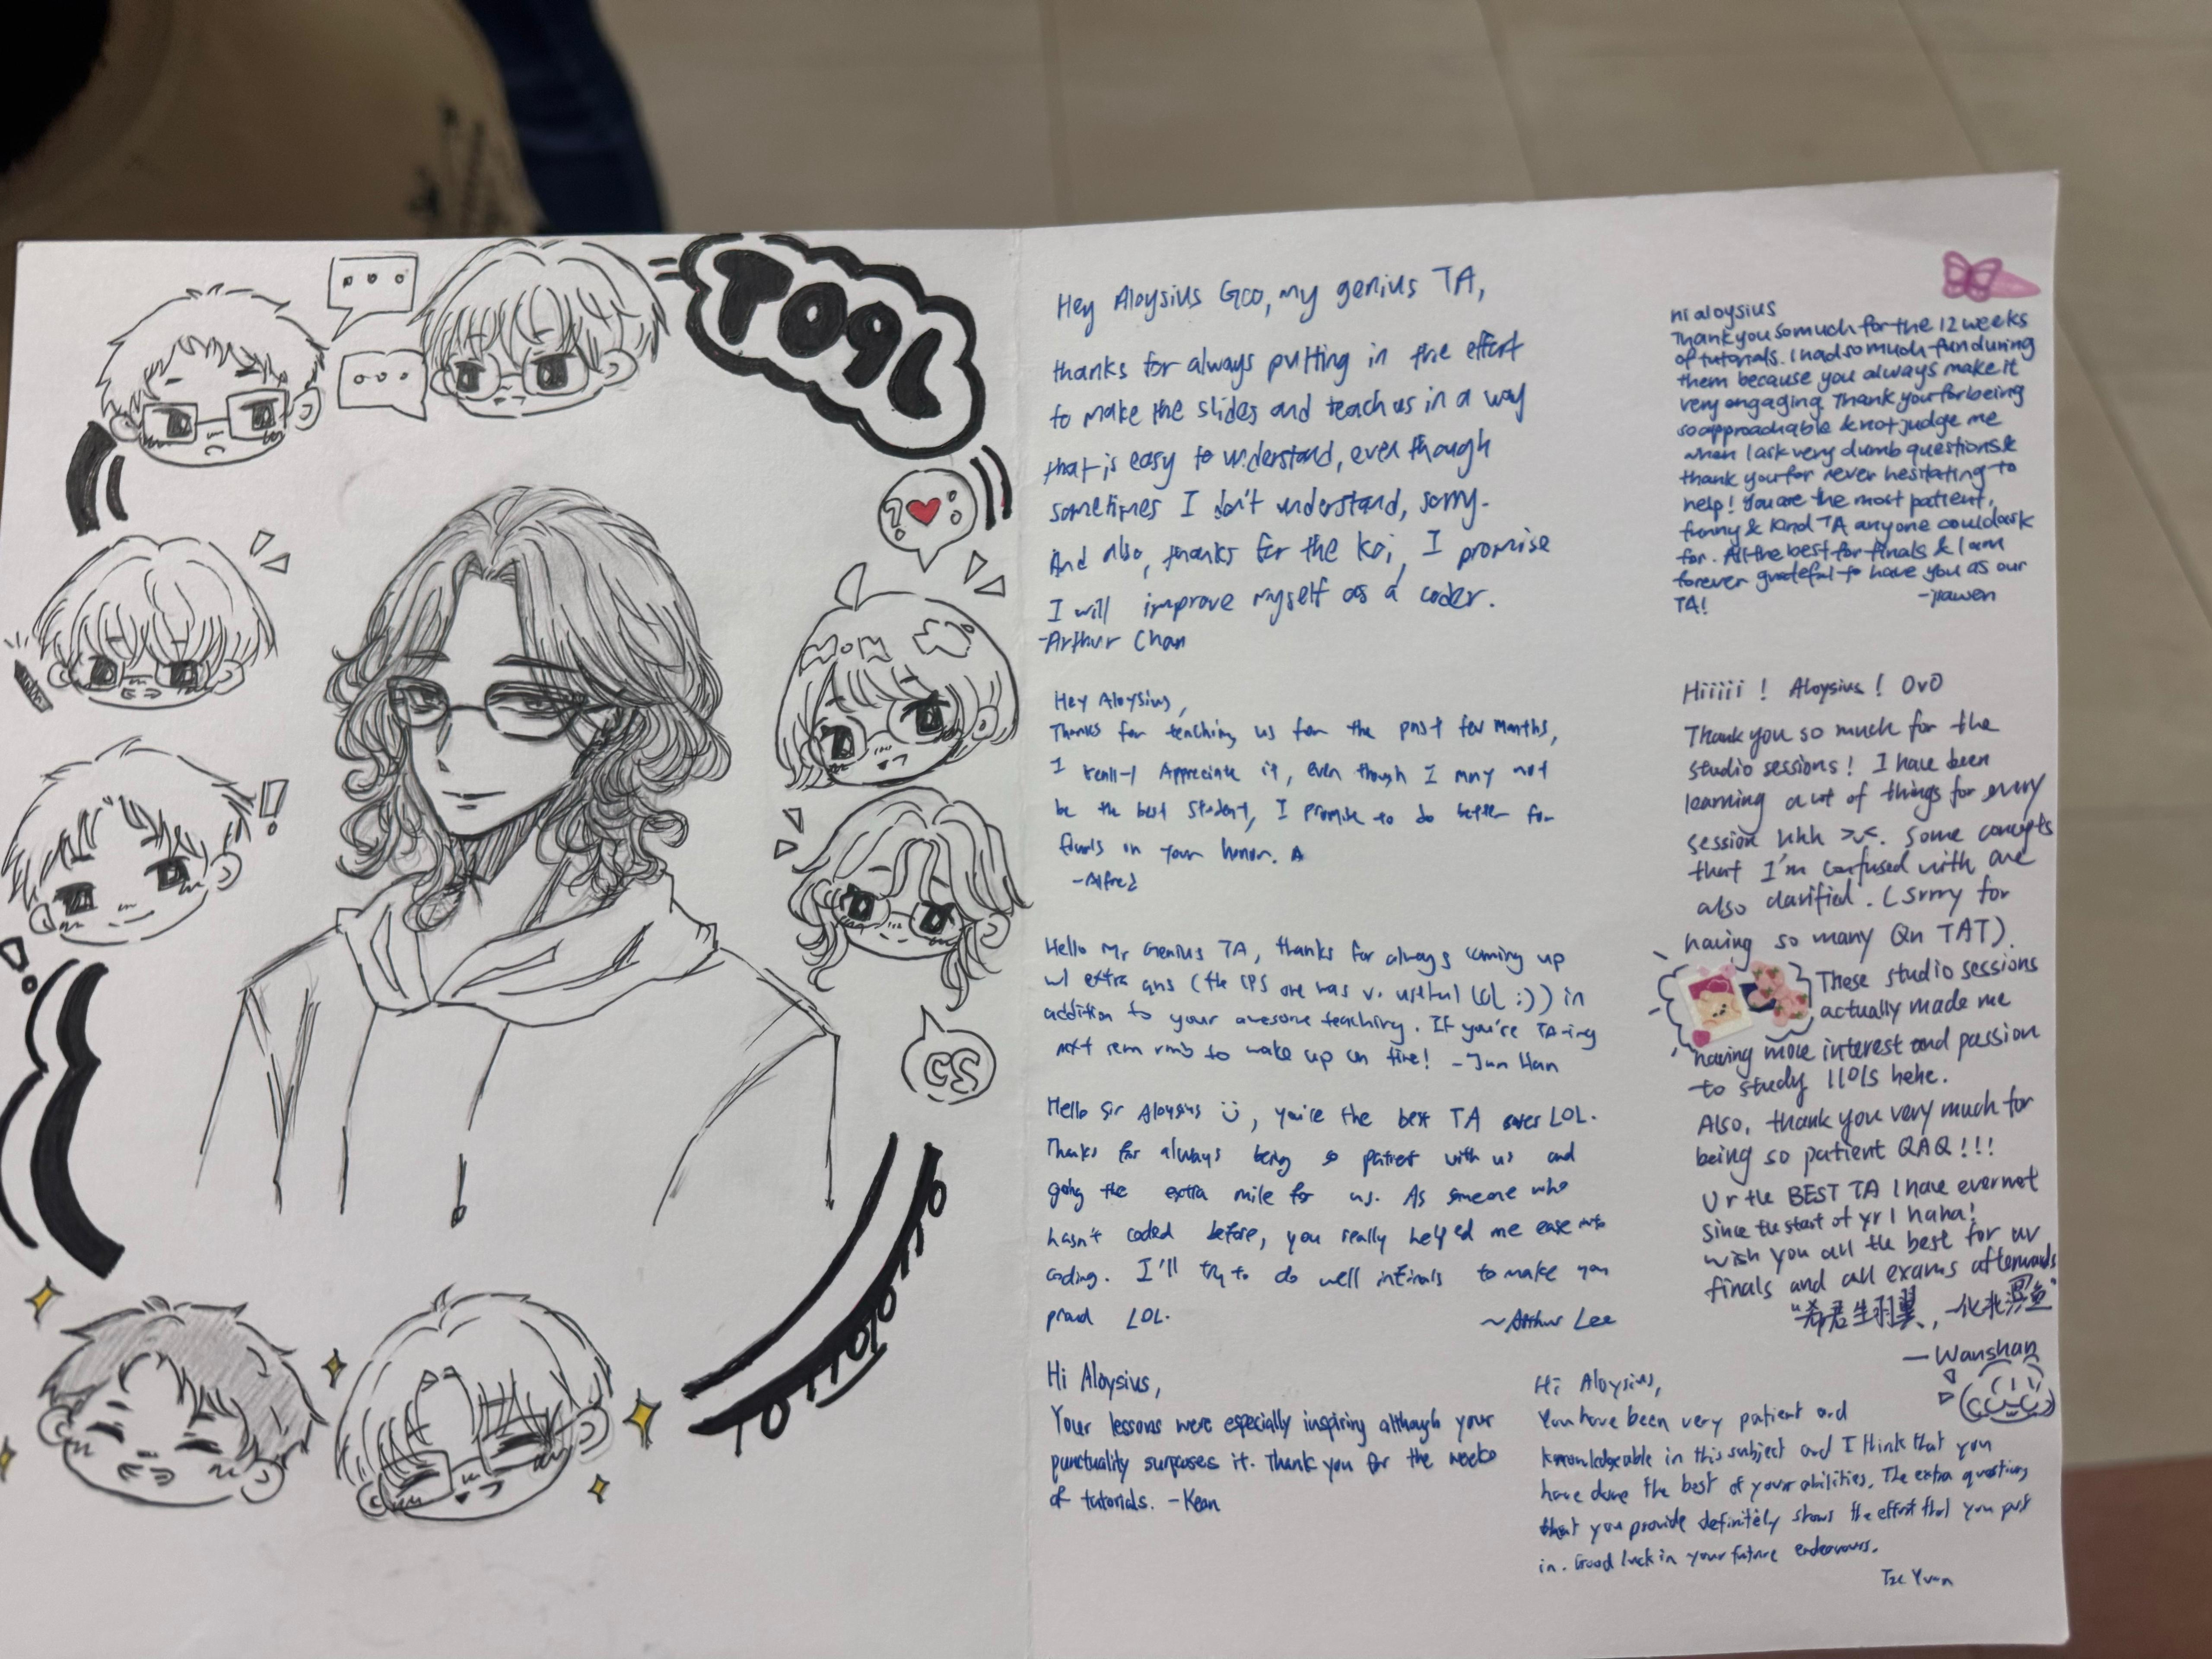 T09L
... 
...
? ♥
MOM
CS
!
!
Hey Aloysius Goo, my genius TA,
thanks for always putting in the effort
to make the slides and teach us in a way
that is easy to understand, even though
sometimes I don't understand, sorry.
And also, thanks for the koi, I promise
I will improve myself as a coder.
-Arthur Chan
Hey Aloysius,
Thanks for teaching us for the past few months,
I really Appreciate it, even though I may not
be the best student, I promise to do better for
finals in your honor.
-Alfred
Hello Mr Genius TA, thanks for always coming up
w/ extra qns (the CPS one was v. useful lol :)) in
addition to your awesome teaching. If you're TA-ing
next sem rmb to wake up on time! - Jun Han
Hello Sir Aloysius :), you're the best TA ever LOL.
Thanks for always being so patient with us and
going the extra mile for us. As someone who
hasn't coded before, you really helped me ease into
coding. I'll try to do well in finals to make you
proud LOL.
~Arthur Lee
Hi Aloysius,
Your lessons were especially inspiring although your
punctuality surpasses it. Thank you for the weeks
of tutorials. -Kean
hi aloysius
Thank you so much for the 12 weeks
of tutorials. I had so much fun during
them because you always make it
very engaging. Thank you for being
so approachable & not judge me
when I ask very dumb questions &
thank you for never hesitating to
help! You are the most patient,
funny & kind TA anyone could ask
for. All the best for finals & I am
forever grateful to have you as our
TA!
-jiawen
Hiiiii ! Aloysius ! OvO
Thank you so much for the
studio sessions! I have been
learning a lot of things for every
session uhh >v<. Some concepts
that I'm confused with are
also clarified. (Srrry for
having so many Qn TAT).
These studio sessions
actually made me
having more interest and passion
to study 1101S hehe.
Also, thank you very much for
being so patient QAQ!!!
Ur the BEST TA I have ever met
since the start of yr 1 haha!
wish you all the best for ur
finals and all exams afterwards
"希君生羽翼，一化北溟鱼"
— Wanshan
Hi Aloysius,
You have been very patient and
knowledgeable in this subject and I think that you
have done the best of your abilities. The extra questions
that you provide definitely shows the effort that you put
in. Good luck in your future endeavours.
Tze Yuan